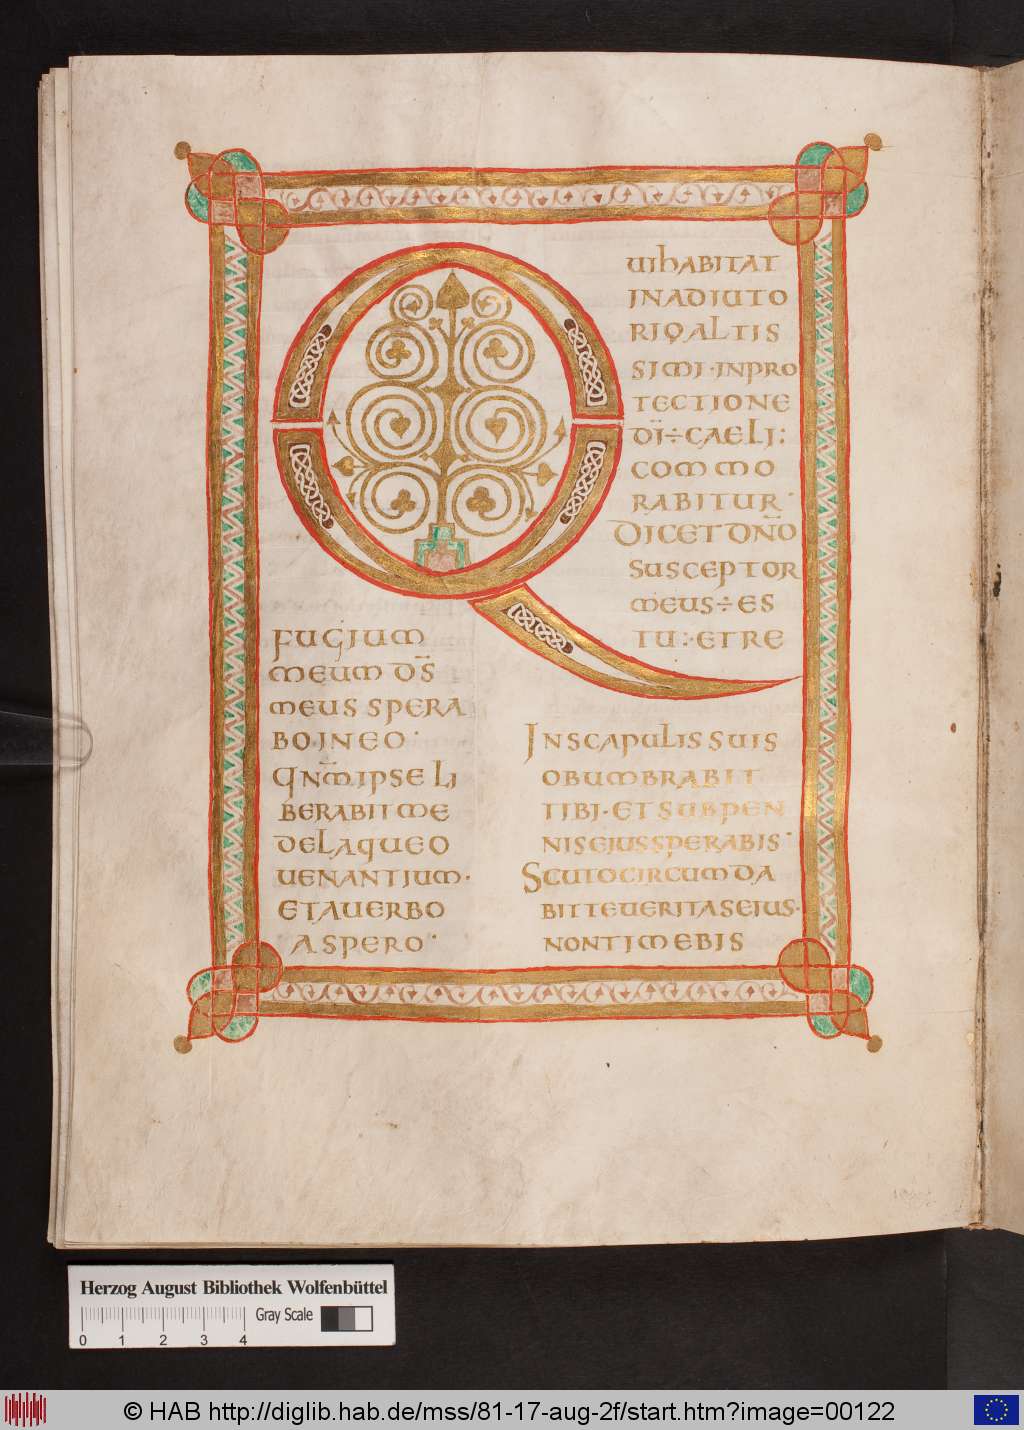 Q
UIHABITAT
INADIUTO
RIOALTIS
SIMI·INPRO
TECTIONE
DI÷CAELI:
COMMO
RABITUR·
DICETDÑO
SUSCEPTOR
MEUS÷ES
TU:·ETRE
FUGIUM
MEUMDS̄
MEUSSPERA
BO·INEO·
QNM̄IPSELI
BERABITME
DELAQUEO
UENANTIUM·
ETAUERBO
ASPERO·
INSCAPULISSUIS
OBUMBRABIT
TIBI·ETSUBPEN
NISEIUSSPERABIS·
SCUTOCIRCUMDA
BITTEUERITASEIUS·
NONTIMEBIS
Herzog August Bibliothek Wolfenbüttel
Gray Scale
0 1 2 3 4
© HAB http://diglib.hab.de/mss/81-17-aug-2f/start.htm?image=00122